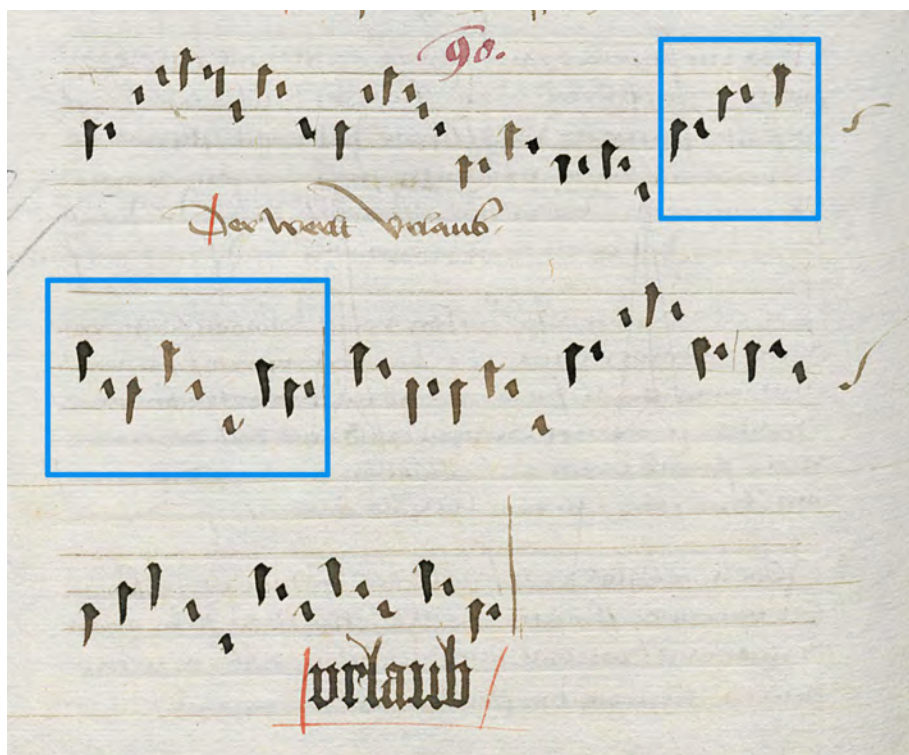 90.
Der werlt vrlaub
vrlaub